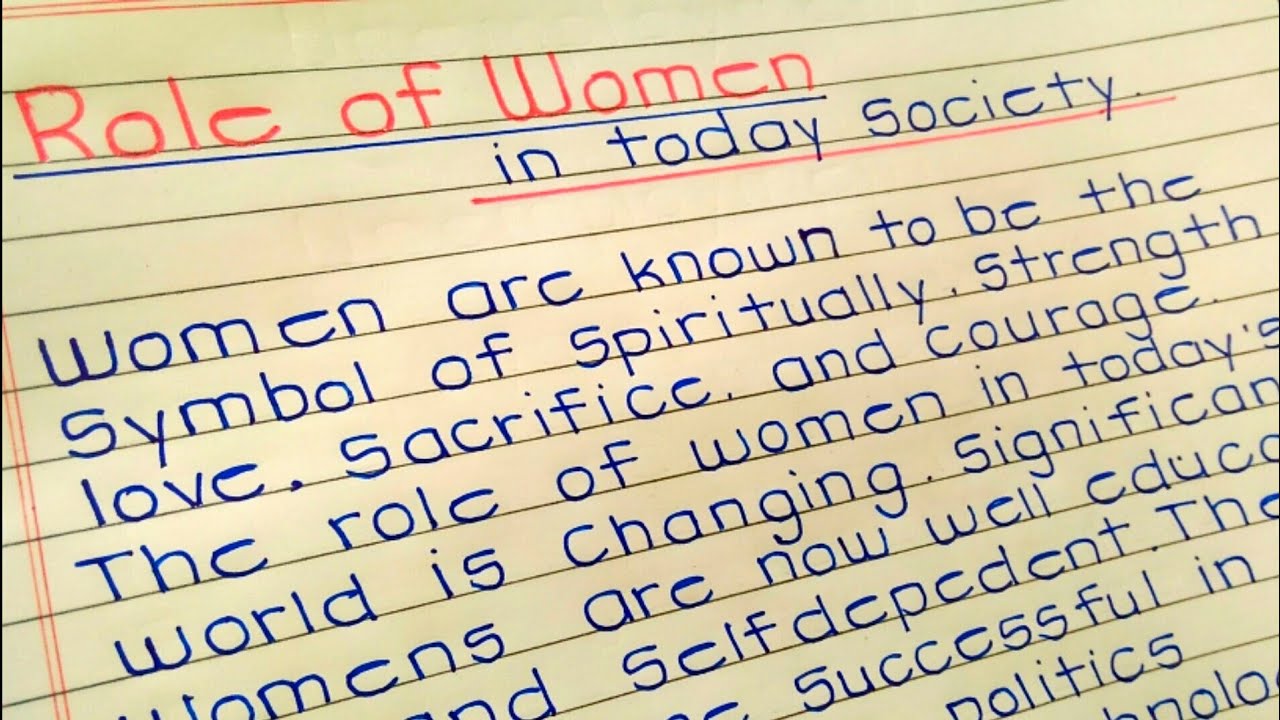 Role of Women
in today society.
Women are known to be the
Symbol of Spiritually, Strength
love, Sacrifice, and Courage.
The role of women in today's
world is Changing. Significan
Womens are now well educa
and Selfdepedent. The
Successful in
politics